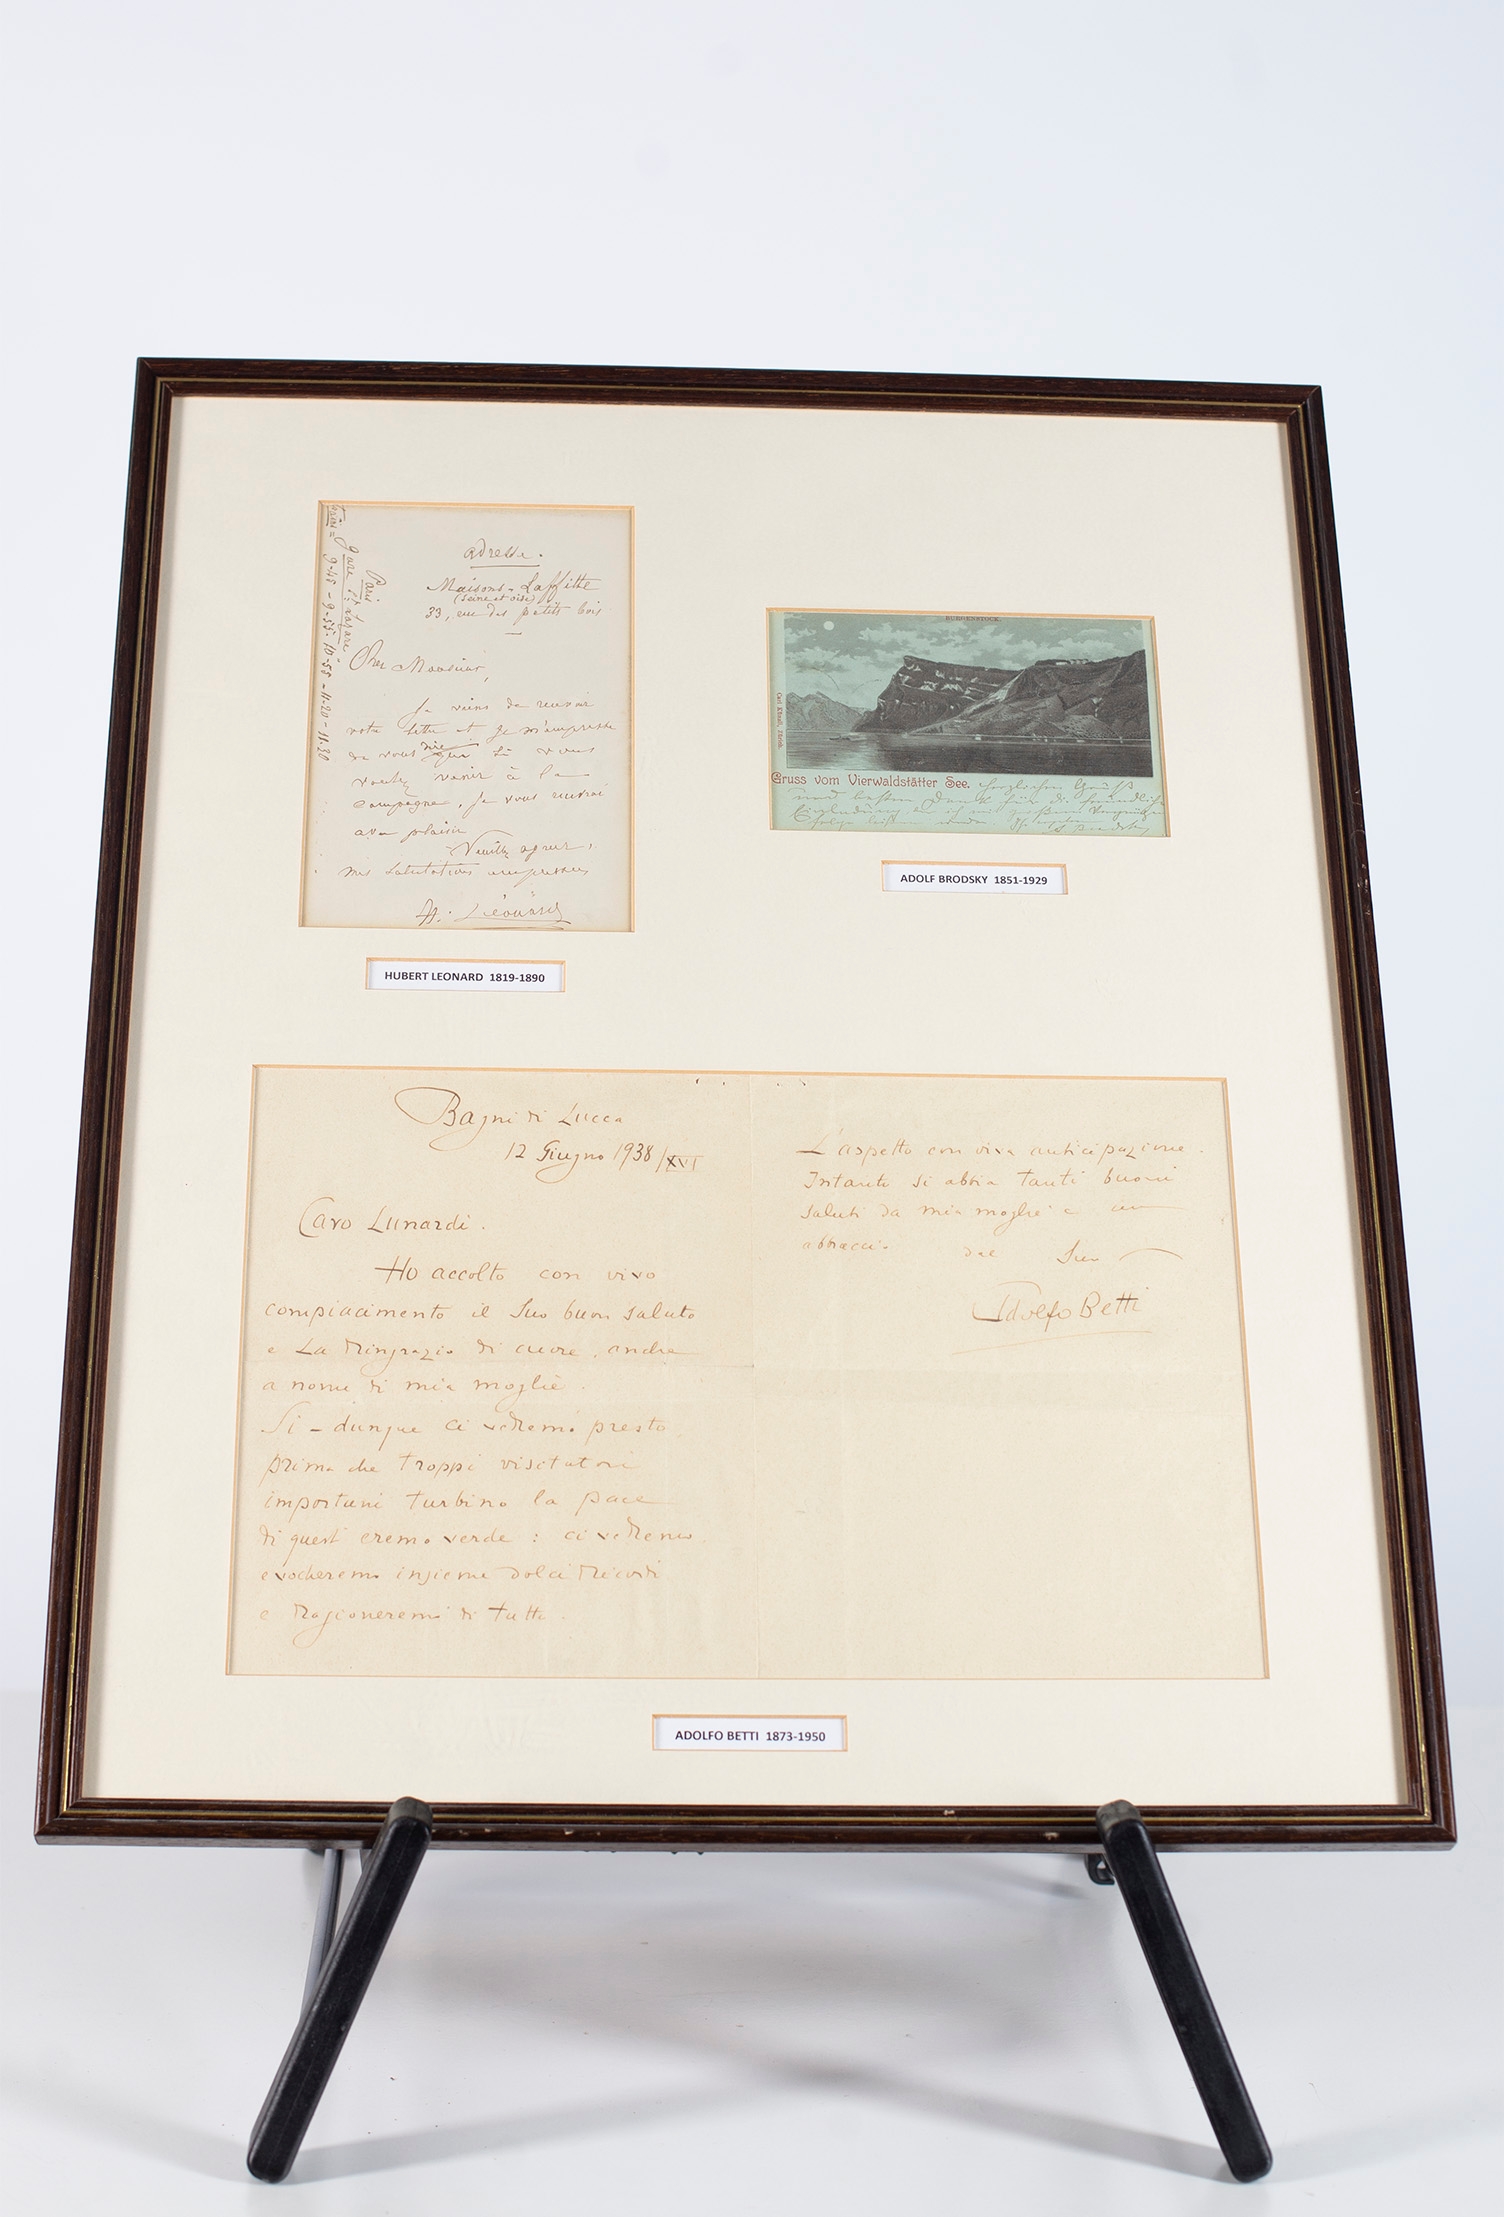 adresse.
Maisons-Laffitte
(Seine et oise)
33, rue des petits bois
Cher Monsieur,
Je viens de recevoir
votre lettre et je m'empresse
de vous dire que si vous
voulez venir à la
campagne, je vous recevrai
avec plaisir
Veuillez agréer,
mes salutations empressées
H. Léonard
Paris
gare St Lazare
9-48 - 9-55. 10-55 - 11-20 - 11.30
HUBERT LEONARD 1819-1890
BÜRGENSTOCK.
Carl Künzli, Zürich.
Gruss vom Vierwaldstätter See. Herzlichen Gruss
und besten Dank für die freundliche
Einladung der ich mit Vergnügen
folge leisten werde. Ihr ergebener
A Brodsky
ADOLF BRODSKY 1851-1929
Bagni di Lucca
12 Giugno 1938/XVI
Caro Lunardi.
Ho accolto con vivo
compiacimento il Suo buon saluto
e La ringrazio di cuore, anche
a nome di mia moglie.
Si - dunque ci vedremo presto
prima che troppi visitatori
importuni turbino la pace
di quest' eremo verde: ci vedremo,
evocheremo insieme dolci ricordi
e ragioneremo di tutto.
L'aspetto con viva anticipazione.
Intanto si abbia tanti buoni
saluti da mia moglie e un
abbraccio dal Suo
Adolfo Betti
ADOLFO BETTI 1873-1950